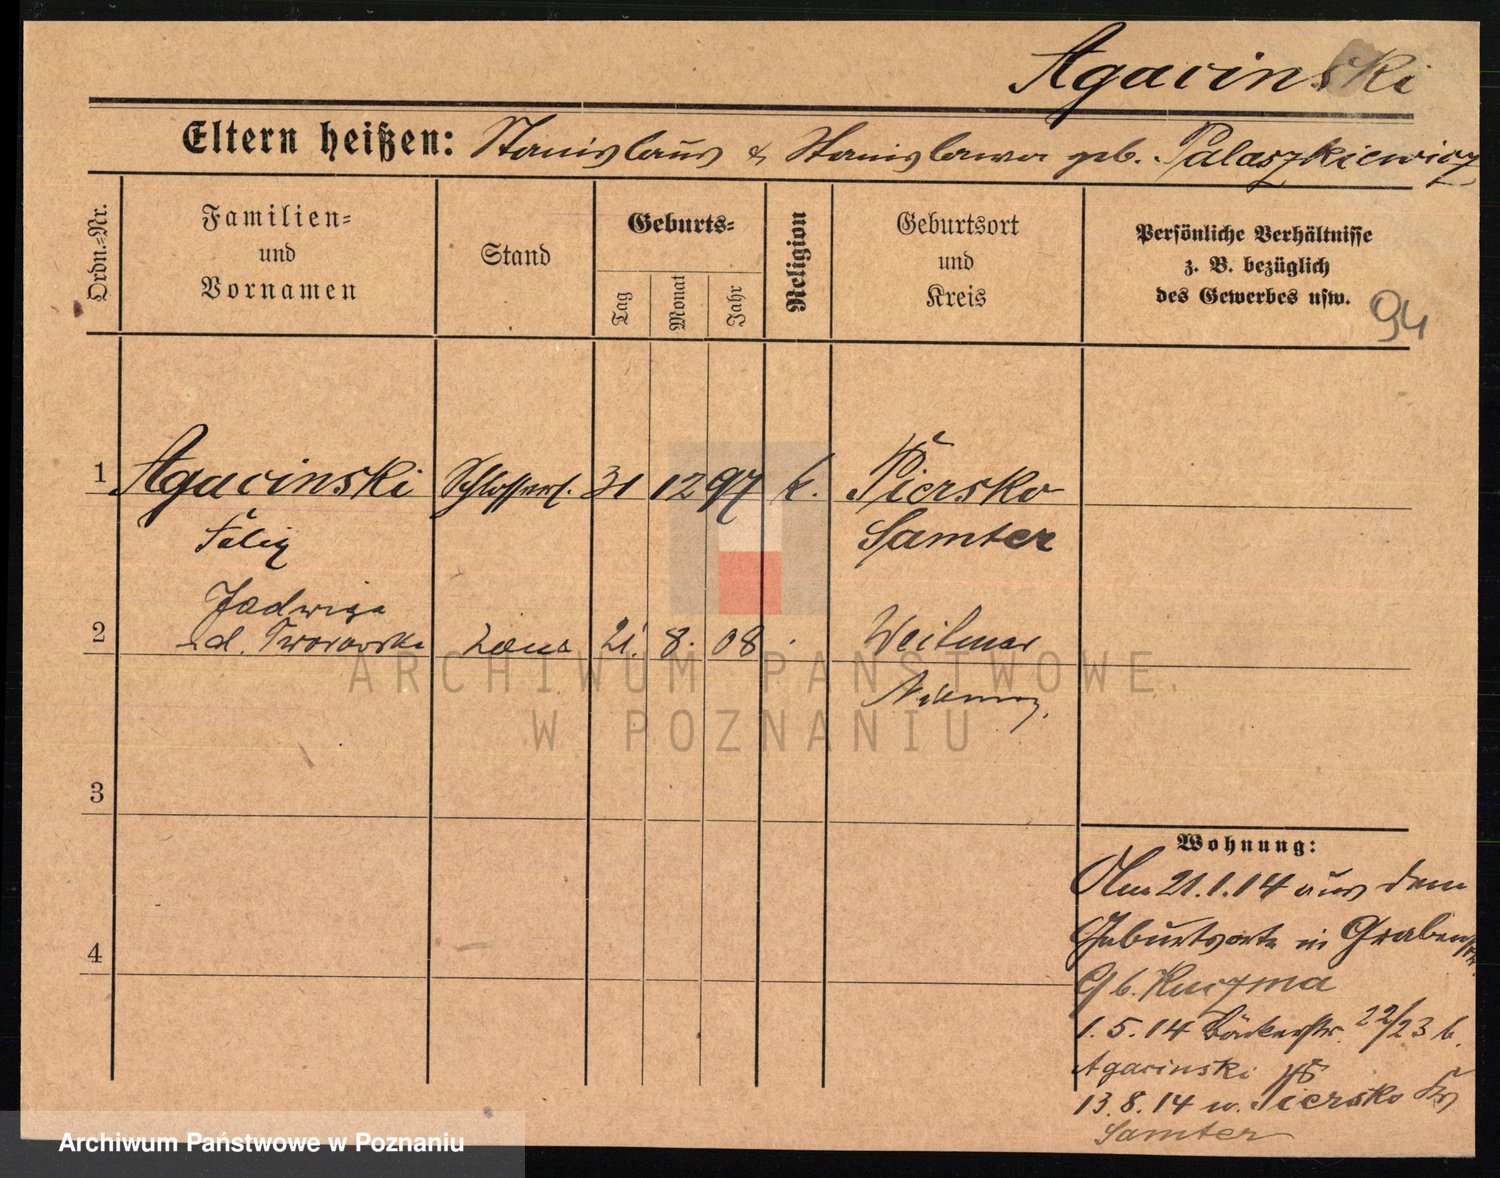 Agacinski
Eltern heißen: Stanislaus & Stanislawa geb. Palaszkiewicz
Ordn.=Nr.
Familien=
und
Vornamen
Stand
Geburts=
Tag
Monat
Jahr
Religion
Geburtsort
und
Kreis
Persönliche Verhältnisse
z. B. bezüglich
des Gewerbes usw.
94
1 Agacinski Schlosserl. 31 12 97 k. Piersko
Felix Samter
Jadwiga
2 d. 21. 8. 08 Weilmar
3
4
Wohnung:
Am 21.1.14 aus dem
Geburtsorte in Grabenstr.
9 b. Kuczma
1.5.14 Bäckerstr. 22/23 b.
Agacinski
13.8.14 n. Piersko Krs
Samter
ARCHIWUM PAŃSTWOWE
W POZNANIU
Archiwum Państwowe w Poznaniu